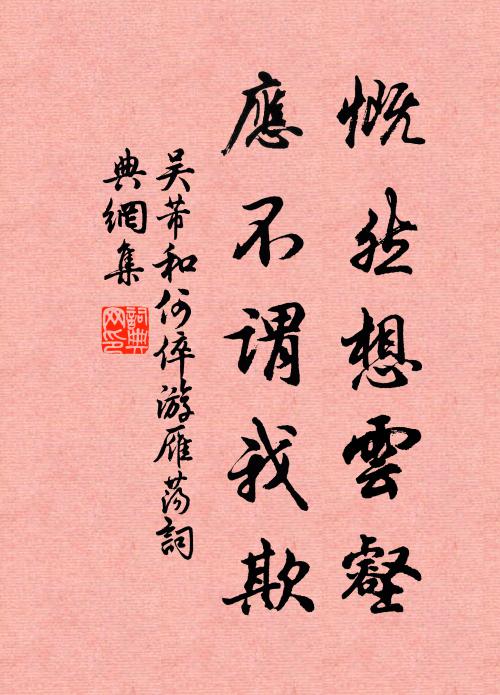 慨然想雲壑
應不謂我欺
吴芾和何倅游雁荡詞
典網集
詞典網印